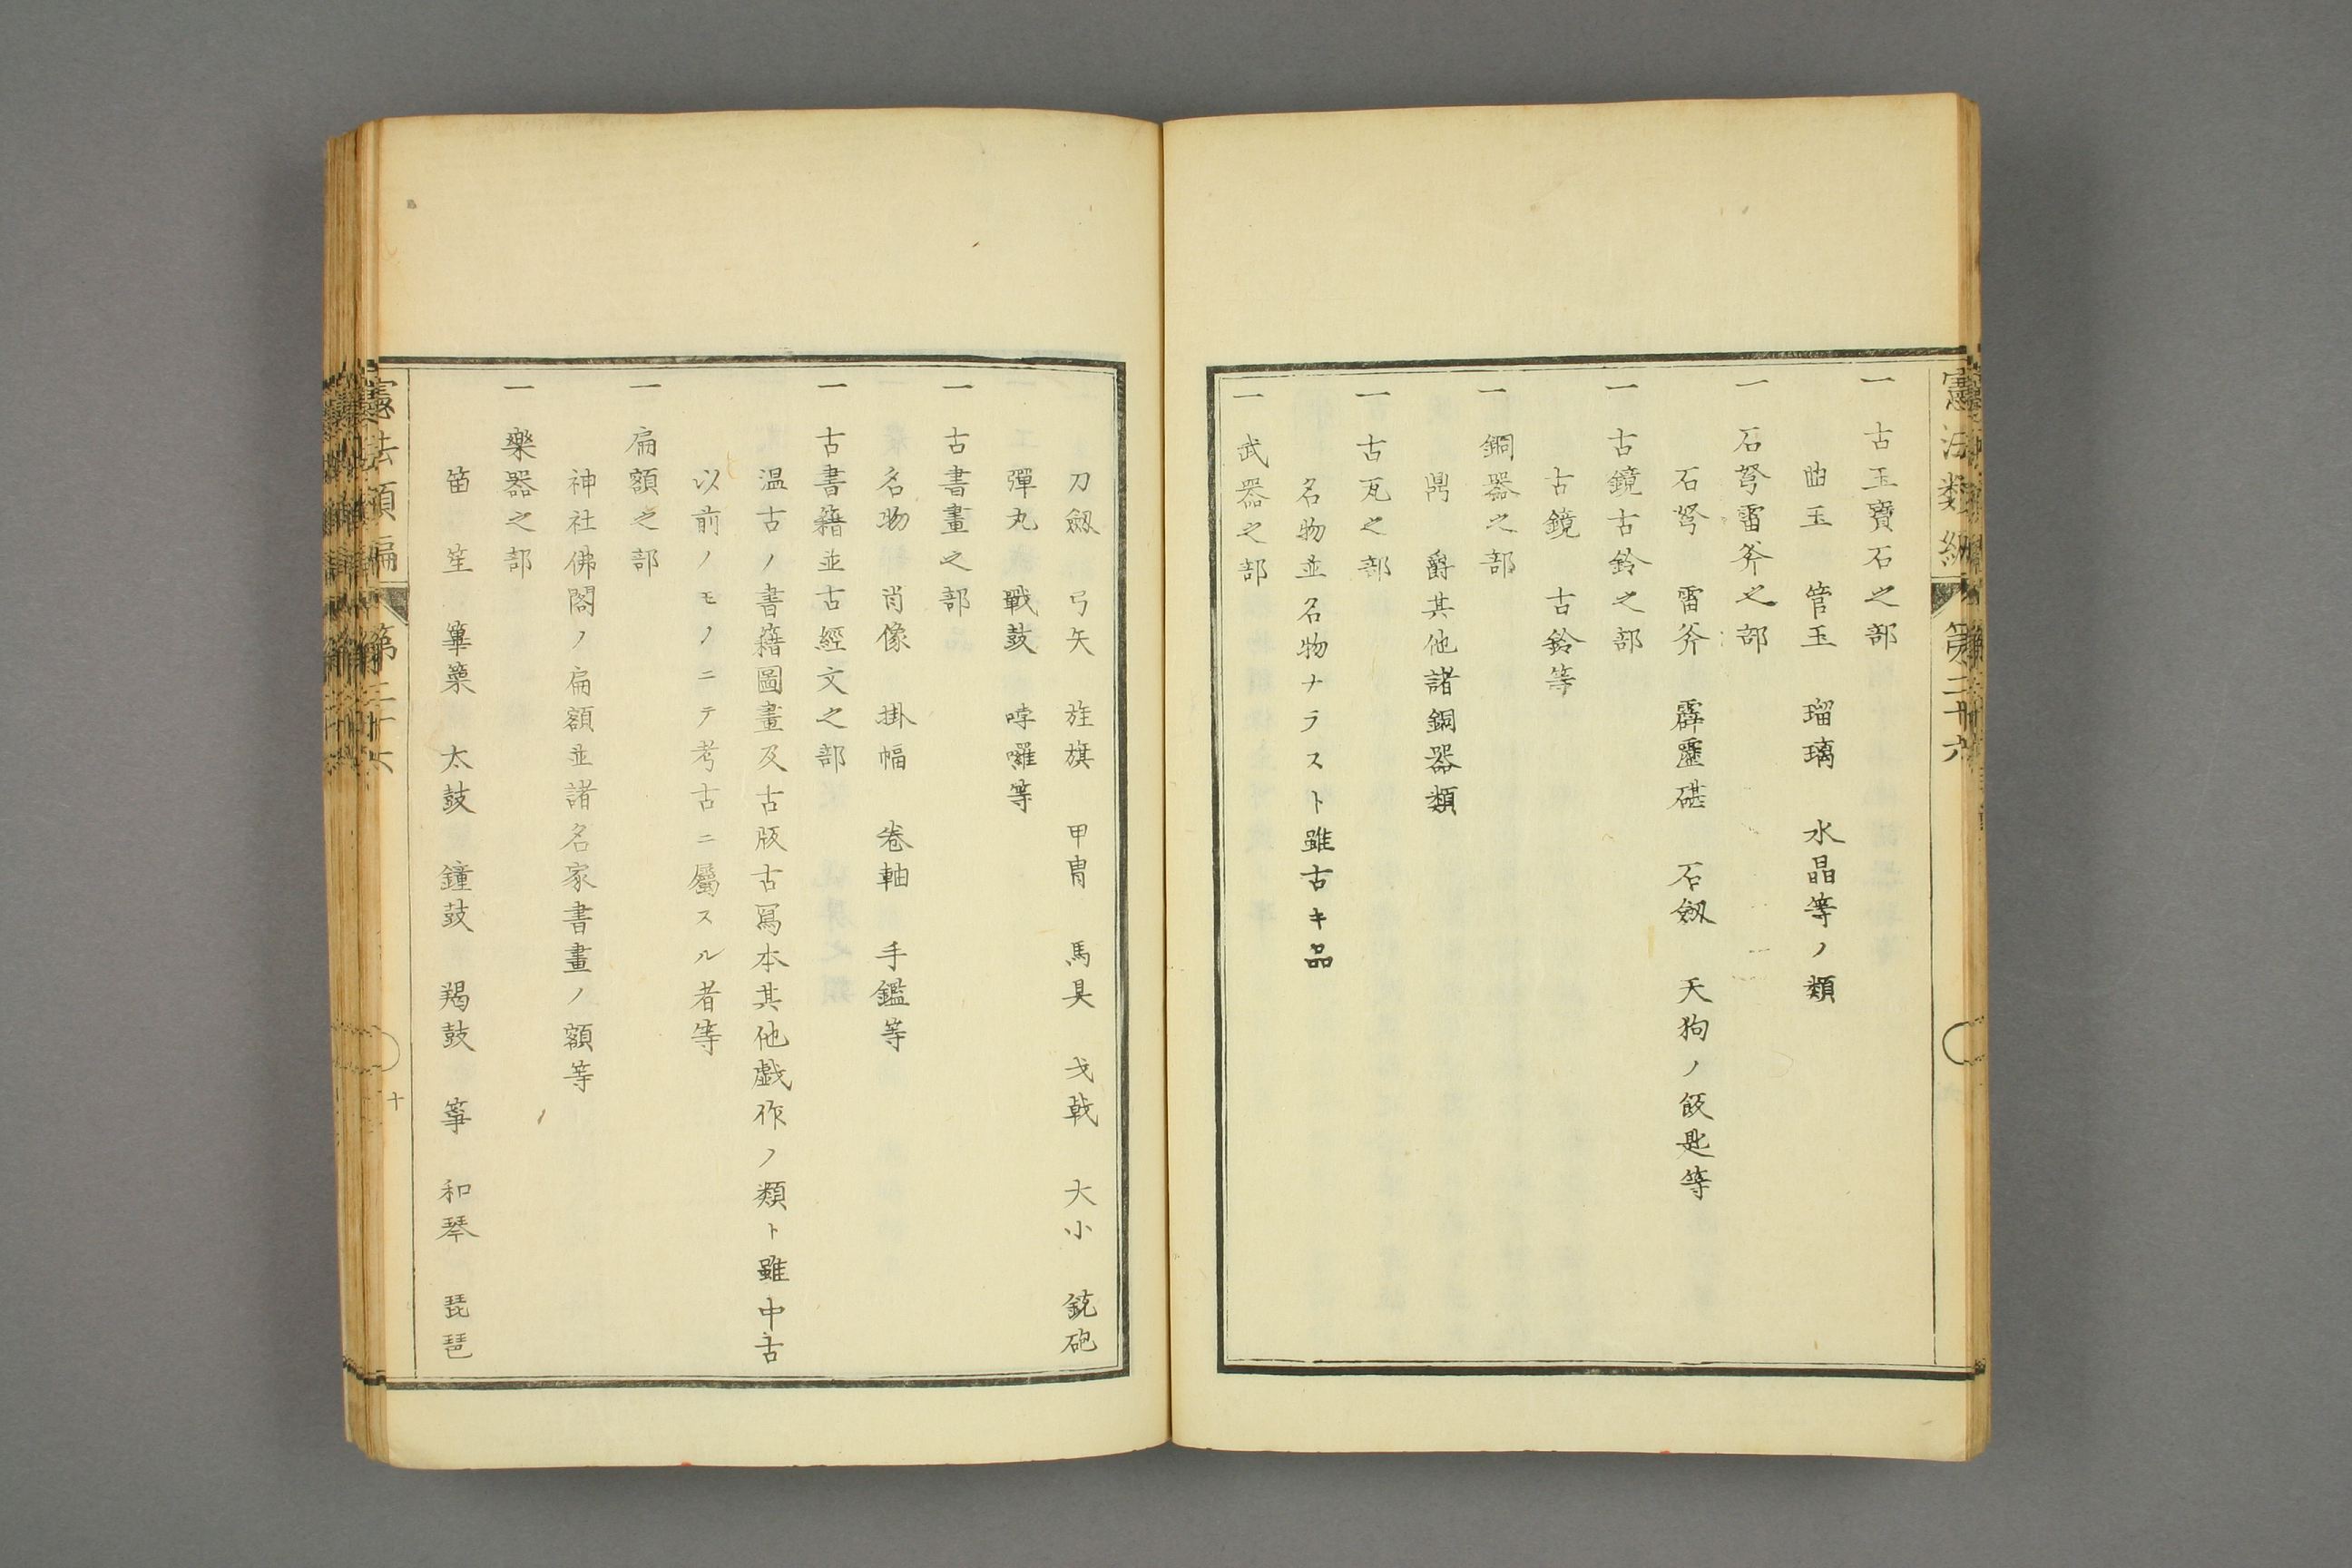 憲法類編 第二十六
一 古玉寶石之部
曲玉 管玉 瑠璃 水晶等ノ類
一 石弩雷斧之部
石弩 雷斧 霹靂碪 石劔 天狗ノ飯匙等
一 古鏡古鈴之部
古鏡 古鈴等
一 銅器之部
鼎 爵其他諸銅器類
一 古瓦之部
名物並名物ナラスト雖古キ品
一 武器之部
刀劔 弓矢 旌旗 甲冑 馬具 戈戟 大小 銃砲
彈丸 戰鼓 哱囉等
一 古書畫之部
名物 肖像 掛幅 卷軸 手鑑等
一 古書籍並古經文之部
温古ノ書籍圖畫及古版古寫本其他戯作ノ類ト雖中古
以前ノモノニテ考古ニ屬スル者等
一 扁額之部
神社佛閣ノ扁額並諸名家書畫ノ額等
一 樂器之部
笛 笙 篳篥 太鼓 鐘鼓 羯鼓 箏 和琴 琵琶
憲法類編 第二十六 十